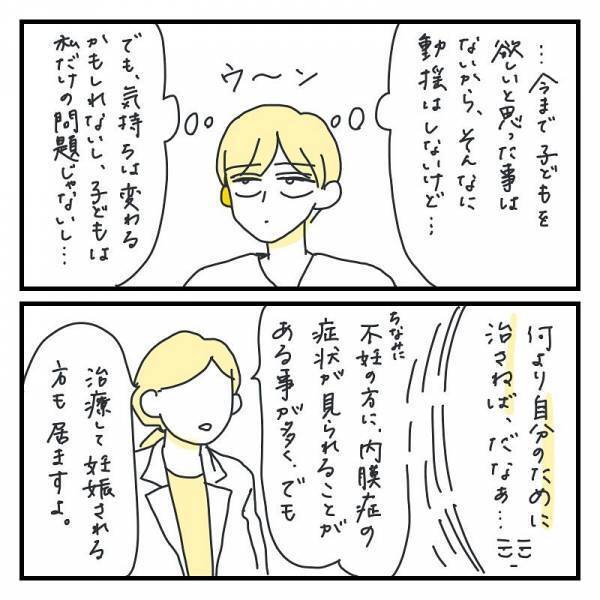 …今まで子どもを
欲しいと思った事は
ないから、そんなに
動揺はしないけど…
ウ〜ン
でも、気持ちは変わる
かもしれないし、子どもは
私だけの問題じゃないし…
何より自分のために
治さねば、だなぁ…
ちなみに
不妊の方に、内膜症の
症状が見られることが
ある事が多く、でも
治療して妊娠される
方も居ますよ。